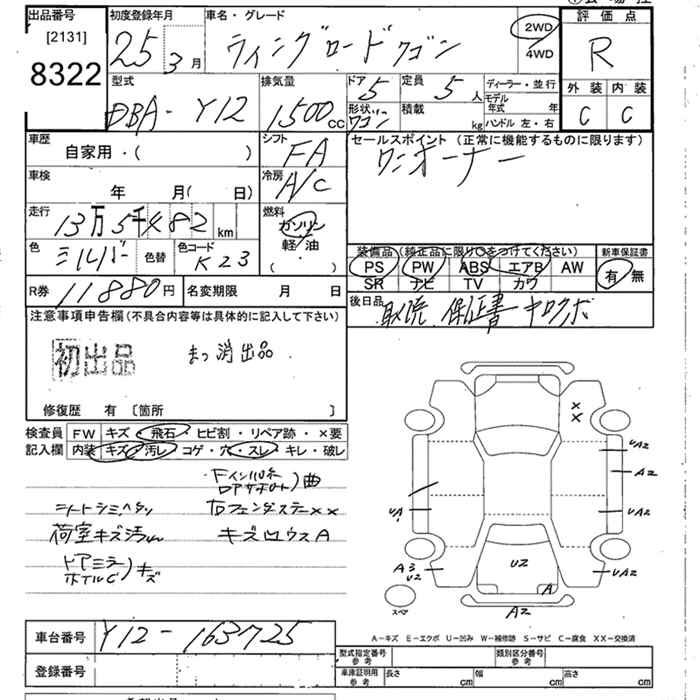 出品番号
[2131]
8322
初度登録年月
25 3 月
車名・グレード
ウィングロードワゴン
2WD
4WD
評価点
R
外装 内装
C C
型式
DBA- Y12
排気量
1500 CC
ドア
5
形状
ワゴン
定員
5 人
積載
kg
ディーラー・並行
モデル年式 年
ハンドル 左・右
車歴
自家用・( )
シフト
FA
セールスポイント (正常に機能するものに限ります)
ワンオーナー
車検
年 月( 日)
冷房
A/C
走行
13万5千482 km
燃料
ガソリン
軽・油
( ・ )
色
シルバー
色替
色コード
K23
装備品 (純正品に限り○をつけてください)
PS PW ABS エアB AW
SR ナビ TV カワ
新車保証書
有 無
R券 11880円
名変期限 月 日
後日品
取説 保証書 キロクボ
注意事項申告欄 (不具合内容等は具体的に記入して下さい)
初出品
まっ消出品
修復歴 有 〔箇所 〕
検査員記入欄
FW キズ・飛石・ヒビ割・リペア跡・×要
内装 キズ・汚レ・コゲ・穴・スレ・キレ・破レ
シートシミヘタリ
荷室キズ汚れ
ドアミラー
ホイルC)キズ
Fインパネ
ロアサポート)曲
右フェンダステー××
キズ凹ウスA
×
×
UA2
A2
UA
UA2
A3
U2
U2
UA2
A
A2
スペア
A-キズ E-エクボ U-凹み W-補修跡 S-サビ C-腐食 XX-交換済
車台番号
Y12-163725
登録番号
型式指定番号
参考
類別区分番号
参考
車庫証明用
参考
長さ cm 幅 cm 高さ cm